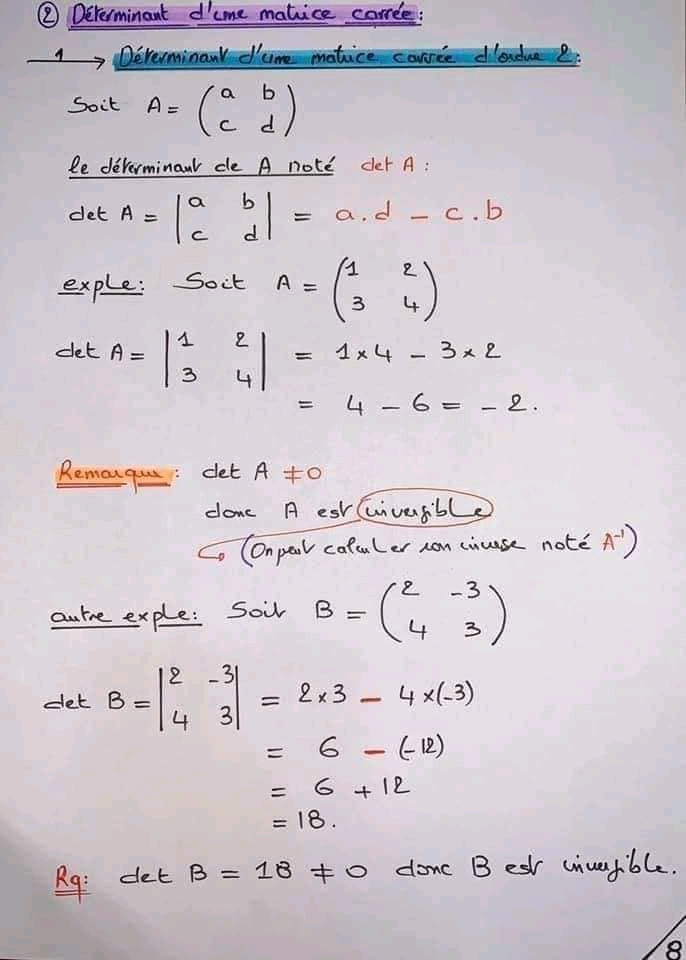 ② Déterminant d'une matrice carrée:
1 → Déterminant d'une matrice carrée d'ordre 2:
Soit A = ( a b
c d )
le déterminant de A noté det A :
det A = | a b
c d | = a.d - c.b
exple: Soit A = ( 1 2
3 4 )
det A = | 1 2
3 4 | = 1 x 4 - 3 x 2
= 4 - 6 = - 2.
Remarque : det A ≠ 0
donc A est inversible
(On peut calculer son inverse noté A⁻¹)
autre exple: Soit B = ( 2 -3
4 3 )
det B = | 2 -3
4 3 | = 2 x 3 - 4 x (-3)
= 6 - (-12)
= 6 + 12
= 18.
Rq: det B = 18 ≠ 0 donc B est inversible.
8